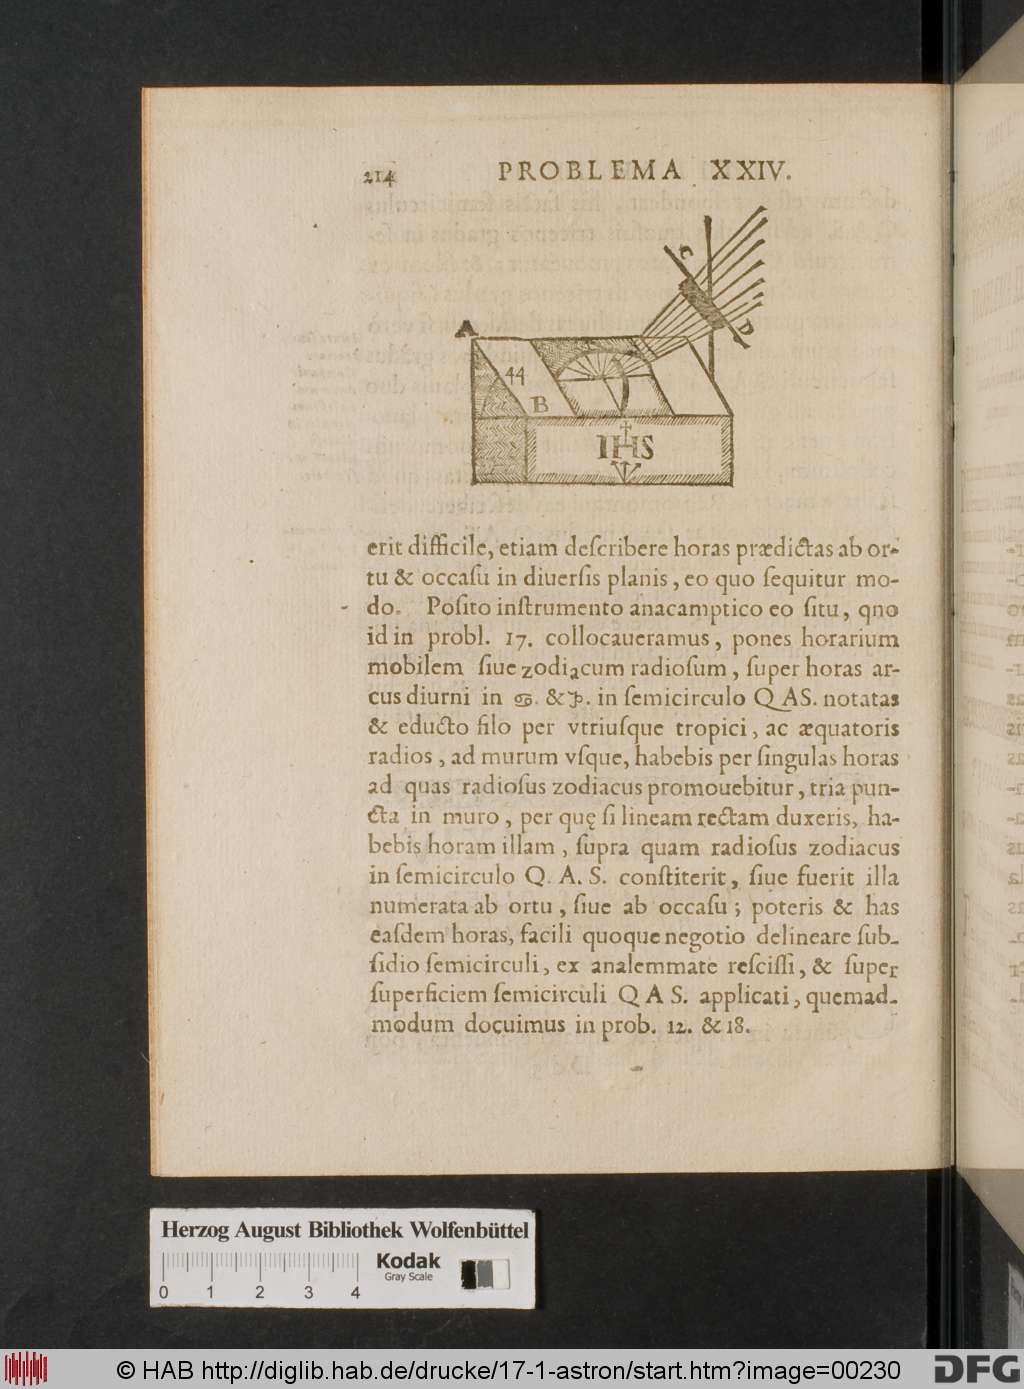 214 PROBLEMA XXIV.
A
C
D
44
B
IHS
erit difficile, etiam deſcribere horas prædictas ab or-
tu & occaſu in diuerſis planis, eo quo ſequitur mo-
do. Poſito inſtrumento anacamptico eo ſitu, qno
id in probl. 17. collocaueramus, pones horarium
mobilem ſiue zodiacum radioſum, ſuper horas ar-
cus diurni in ♋. & ♑. in ſemicirculo QAS. notatas
& educto filo per vtriuſque tropici, ac æquatoris
radios, ad murum vſque, habebis per ſingulas horas
ad quas radioſus zodiacus promouebitur, tria pun-
cta in muro, per quę ſi lineam rectam duxeris, ha-
bebis horam illam, ſupra quam radioſus zodiacus
in ſemicirculo Q. A. S. conſtiterit, ſiue fuerit illa
numerata ab ortu, ſiue ab occaſu; poteris & has
eaſdem horas, facili quoque negotio delineare ſub-
ſidio ſemicirculi, ex analemmate reſciſſi, & ſuper
ſuperficiem ſemicirculi Q A S. applicati, quemad-
modum docuimus in prob. 12. & 18.
Herzog August Bibliothek Wolfenbüttel
Kodak
Gray Scale
0 1 2 3 4
© HAB http://diglib.hab.de/drucke/17-1-astron/start.htm?image=00230
DFG